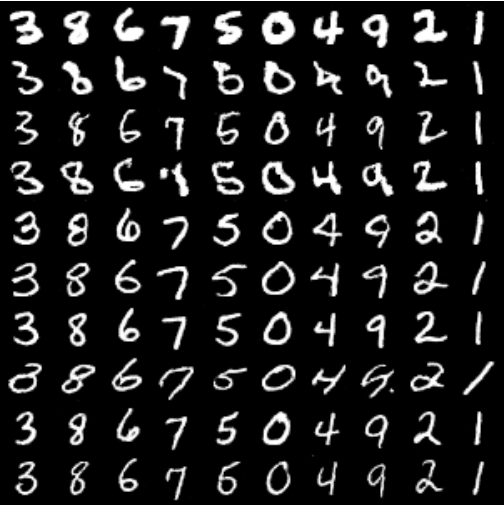 3 8 6 7 5 0 4 9 2 1
3 8 6 7 5 0 4 9 2 1
3 8 6 7 5 0 4 9 2 1
3 8 6 5 0 4 9 2 1
3 8 6 7 5 0 4 9 2 1
3 8 6 7 5 0 4 9 2 1
3 8 6 7 5 0 4 9 2 1
3 8 6 7 5 0 4 9 2 1
3 8 6 7 5 0 4 9 2 1
3 8 6 7 5 0 4 9 2 1